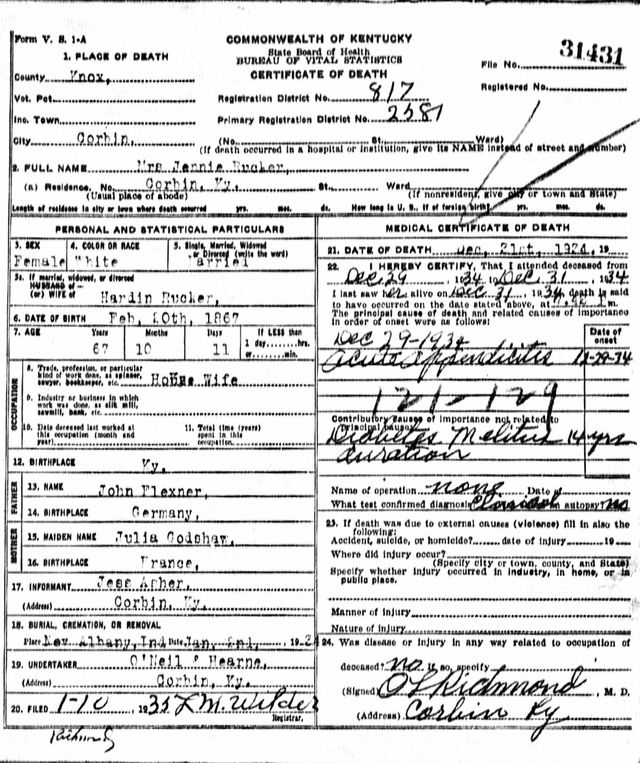 Form V. S. 1-A
COMMONWEALTH OF KENTUCKY
State Board of Health
BUREAU OF VITAL STATISTICS
CERTIFICATE OF DEATH
File No. 31431
Registered No.
1. PLACE OF DEATH
County Knox,
Vot. Pct.
Inc. Town
City Corbin,
Registration District No. 817
Primary Registration District No. 2381
(No. St. Ward)
(If death occurred in a hospital or institution, give its NAME instead of street and number)
2. FULL NAME Mrs Jennie Rucker,
(a) Residence. No. Corbin, Ky. St. Ward
(Usual place of abode) (If nonresident, give city or town and State)
Length of residence in city or town where death occurred yrs. mos. ds. How long in U. S. if of foreign birth? yrs. mos. ds.
PERSONAL AND STATISTICAL PARTICULARS
3. SEX Female
4. COLOR OR RACE White
5. Single, Married, Widowed or Divorced (write the word)
5a. If married, widowed, or divorced
HUSBAND of
(or) WIFE of Hardin Rucker,
6. DATE OF BIRTH Feb, 20th, 1867
7. AGE Years Months Days If LESS than
67 10 11 1 day......hrs.
or......min.
OCCUPATION
8. Trade, profession, or particular kind of work done, as spinner, sawyer, bookkeeper, etc. House Wife
9. Industry or business in which work was done, as silk mill, sawmill, bank, etc.
10. Date deceased last worked at this occupation (month and year)
11. Total time (years) spent in this occupation
12. BIRTHPLACE Ky.
FATHER
13. NAME John Flexner,
14. BIRTHPLACE Germany,
MOTHER
15. MAIDEN NAME Julia Godshaw,
16. BIRTHPLACE France,
17. INFORMANT Jess Asher,
(Address) Corbin, Ky.
18. BURIAL, CREMATION, OR REMOVAL
Place New Albany, Ind Date Jan,
19. UNDERTAKER O'Neil & Hearne,
(Address) Corbin, Ky.
20. FILED 1-10 1935 L M. Wilder
Registrar.
MEDICAL CERTIFICATE OF DEATH
21. DATE OF DEATH Dec, 1934, 19
22. I HEREBY CERTIFY, That I attended deceased from
Dec 29 1934 to Dec 31 1934
I last saw her alive on Dec 31, 1934, death is said
to have occurred on the date stated above, at m.
The principal cause of death and related causes of importance in order of onset were as follows:
Date of onset
Dec 29-1934
Acute appendicitis 12-29-34
121-129
Contributory causes of importance not related to principal cause:
Diabetes Melitus 14 yrs
duration
Name of operation none Date of
What test confirmed diagnosis Clinical an autopsy? No
23. If death was due to external causes (violence) fill in also the following:
Accident, suicide, or homicide? date of injury 19
Where did injury occur?
(Specify city or town, county, and State)
Specify whether injury occurred in industry, in home, or in public place.
Manner of injury
Nature of injury
24. Was disease or injury in any way related to occupation of
deceased? no If so, specify
(Signed) O L Richmond, M. D.
(Address) Corbin Ky